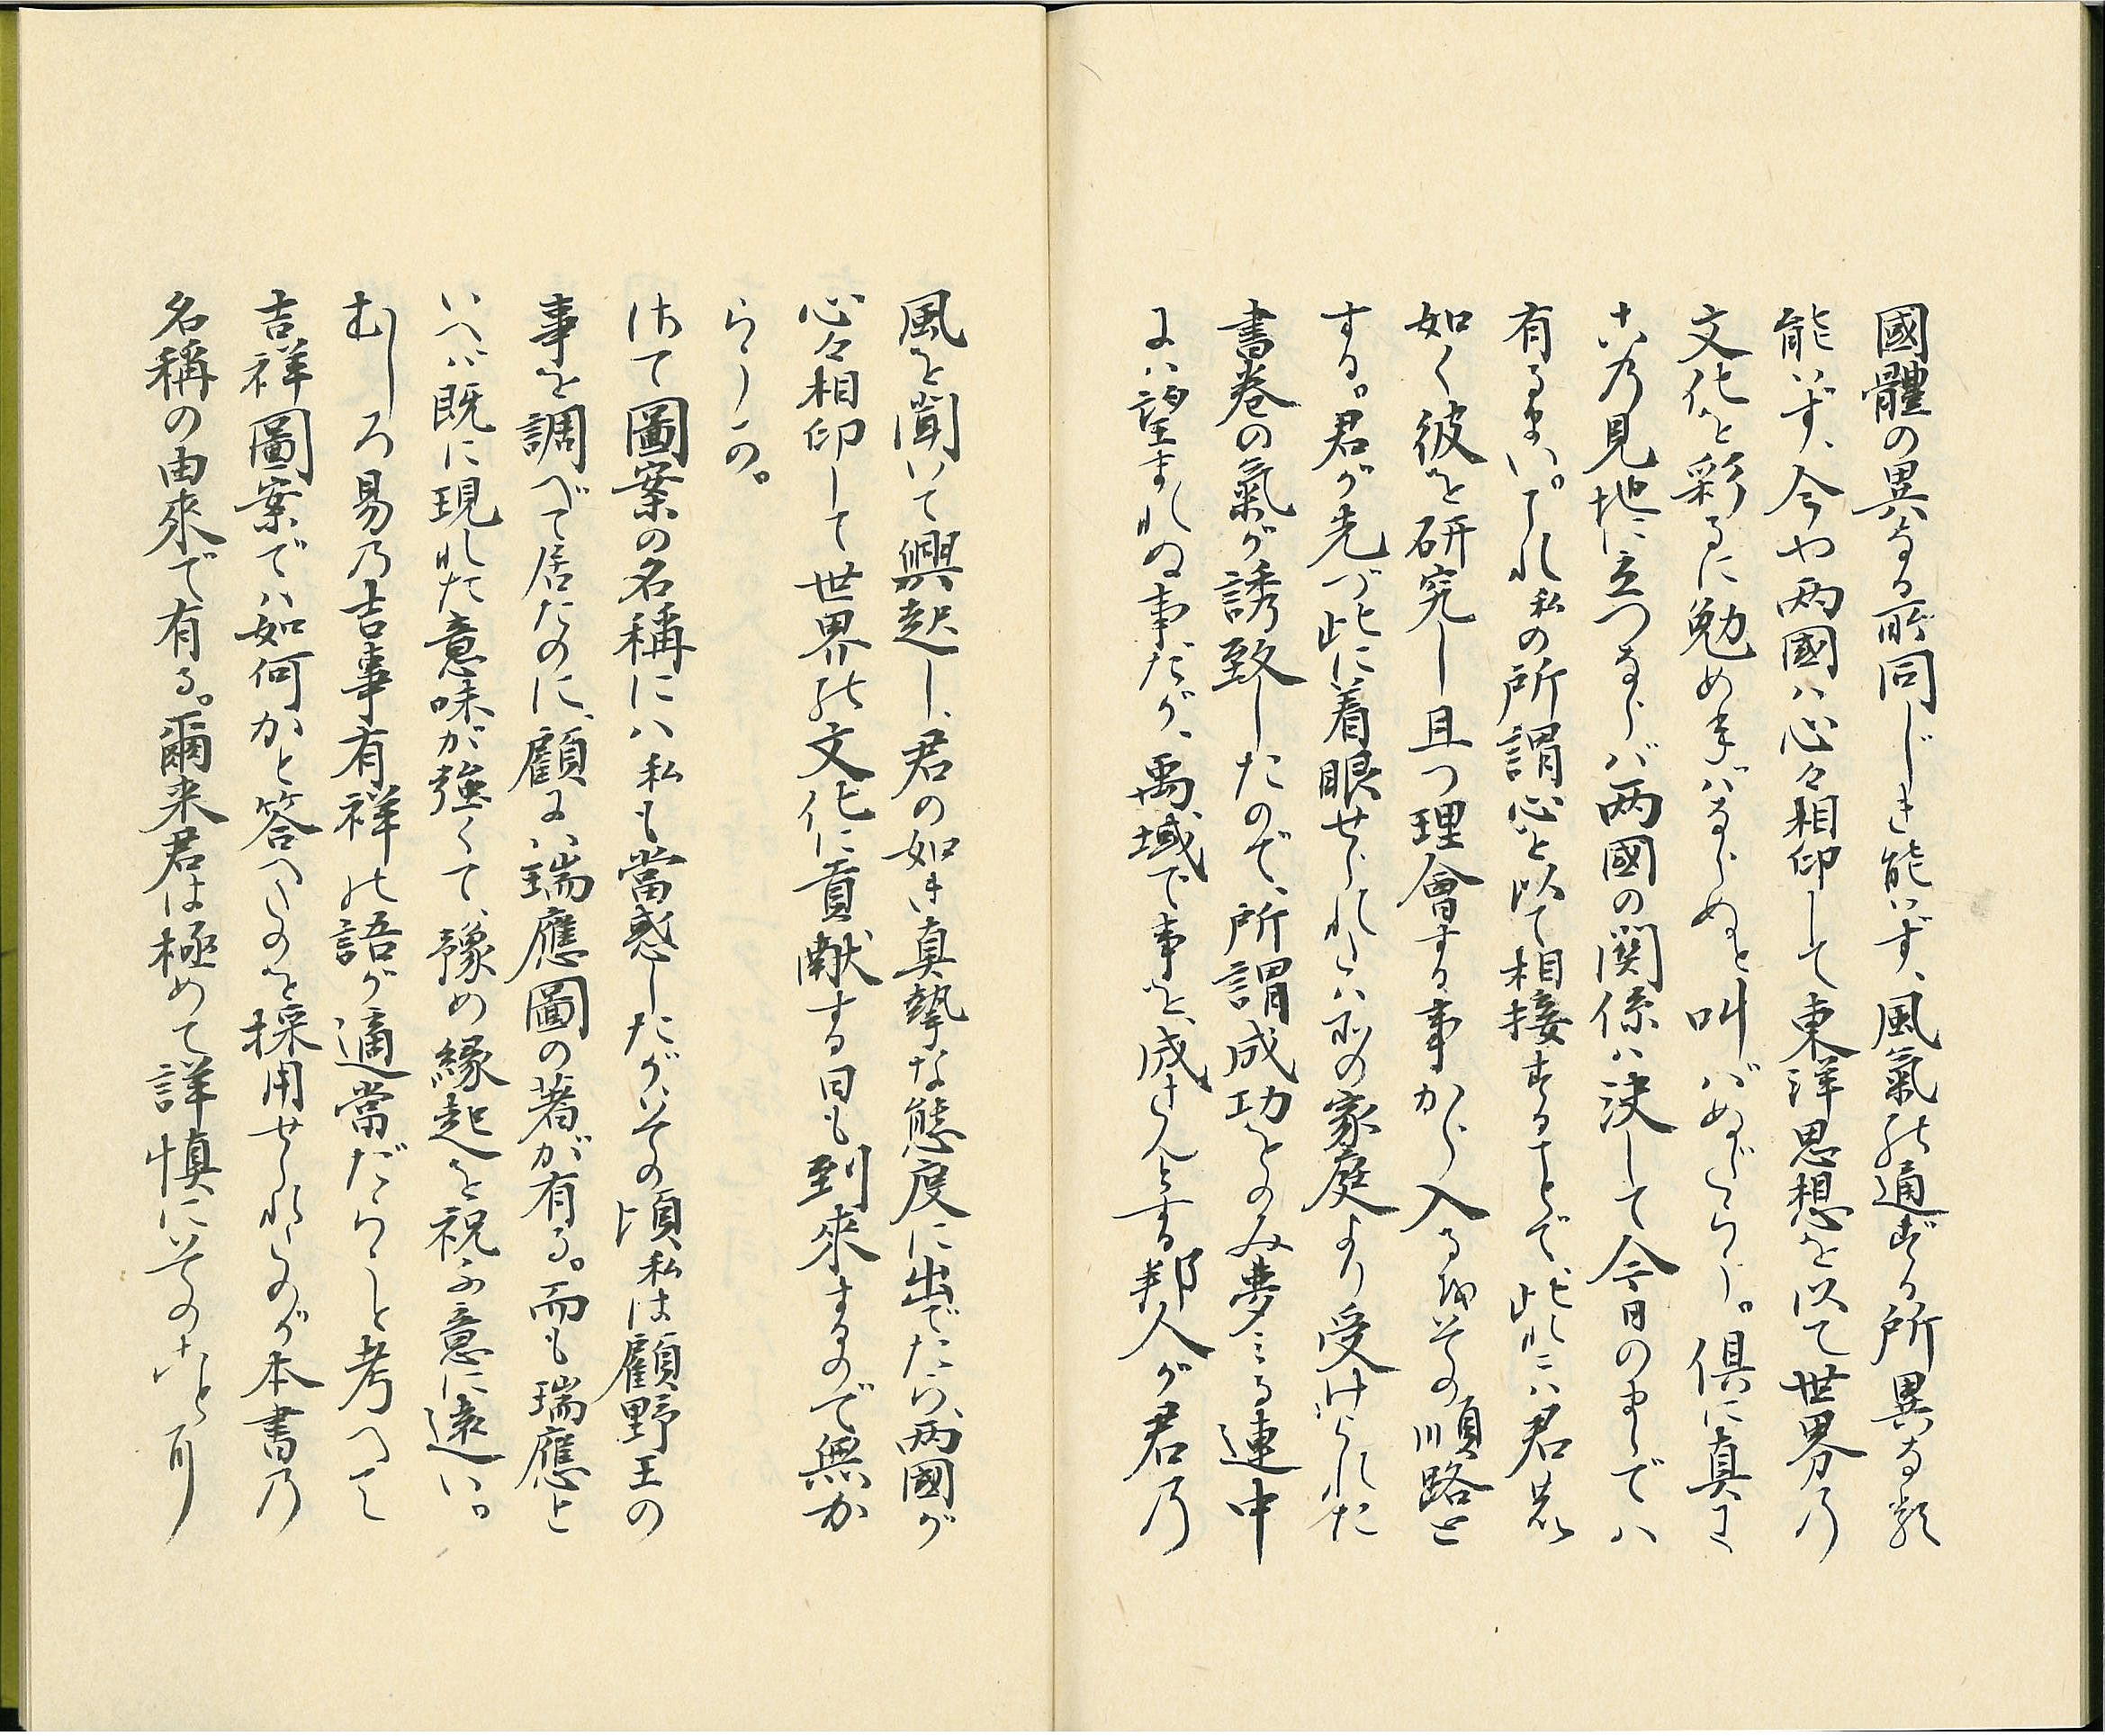 國體の異なる所同じき能はず、風氣の通ずる所異なる類
能はず、今や両國ハ心々相印して東洋思想を以て世界乃
文化を彩るに勉めねバならぬと叫バねバならう。倶に真に
この見地に立つならバ両國の関係ハ決して今日のまゝでハ
有るまい。これ私の所謂心を以て相接することで、此れにハ君
如く彼を研究し且つ理會する事から入るがその順路と
する。君が先づ此に着眼せられたハ君の家庭より受けられた
書巻の氣が誘致したので、所謂成功をのみ夢ミる連中
にハ望まれぬ事だが、禹域で事を成さんとする邦人が君乃
風を聞いて興起し、君の如き真摯な態度に出でたら、両國が
心々相印して世界の文化に貢献する日も到來するので無か
らうか。
はて圖案の名稱にハ私も當惑したが、その頃私は顧野王の
事を調べて居たのに、顧にハ瑞應圖の著が有る。而も瑞應と
いへバ既に現れた意味が強くて、豫め縁起を祝ふ意に遠い。
むしろ易乃吉事有祥の語が適當だらうと考へて
吉祥圖案でハ如何かと答へたのを採用せられたのが本書乃
名稱の由來で有る。爾来君は極めて詳慎にそのこと可